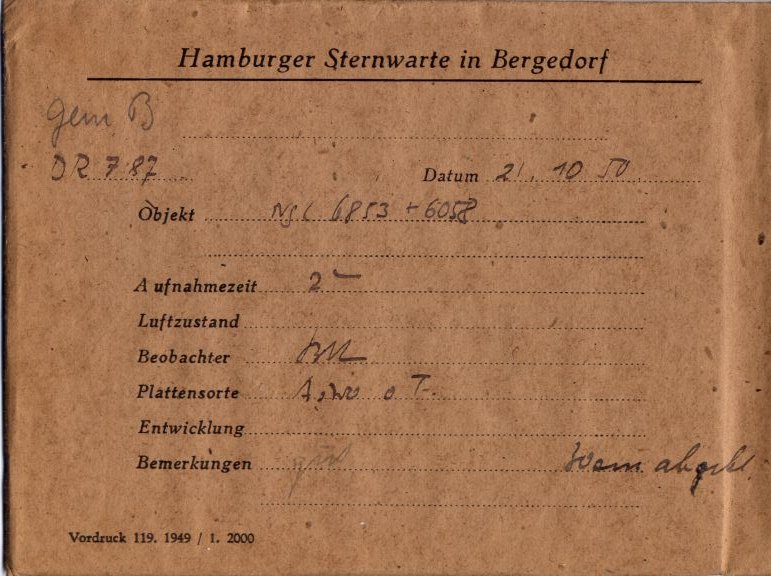 Hamburger Sternwarte in Bergedorf
gem B
DR 787
Datum 21. 10 50
Objekt NGC 6853 + 6058
Aufnahmezeit 2
Luftzustand
Beobachter
Plattensorte
Entwicklung
Bemerkungen
Vordruck 119. 1949 / 1. 2000